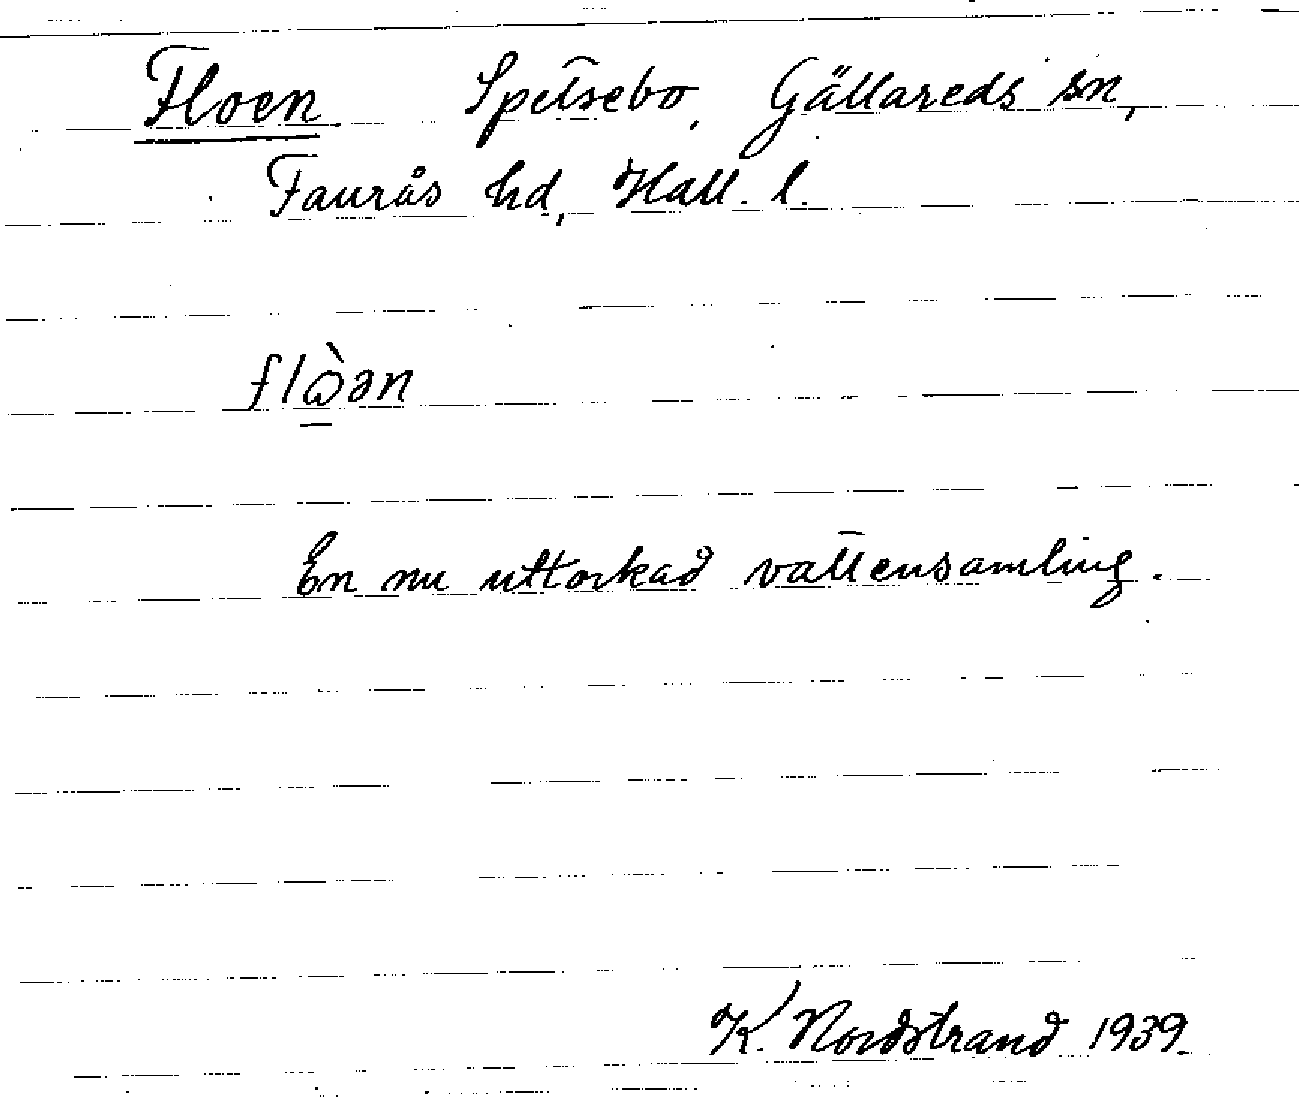 Floen. Spetsebo, Gällareds sn,
Faurås hd, Hall. l.
flὼ̲ən
En nu uttorkad vattensamling.
K. Nordstrand 1939.